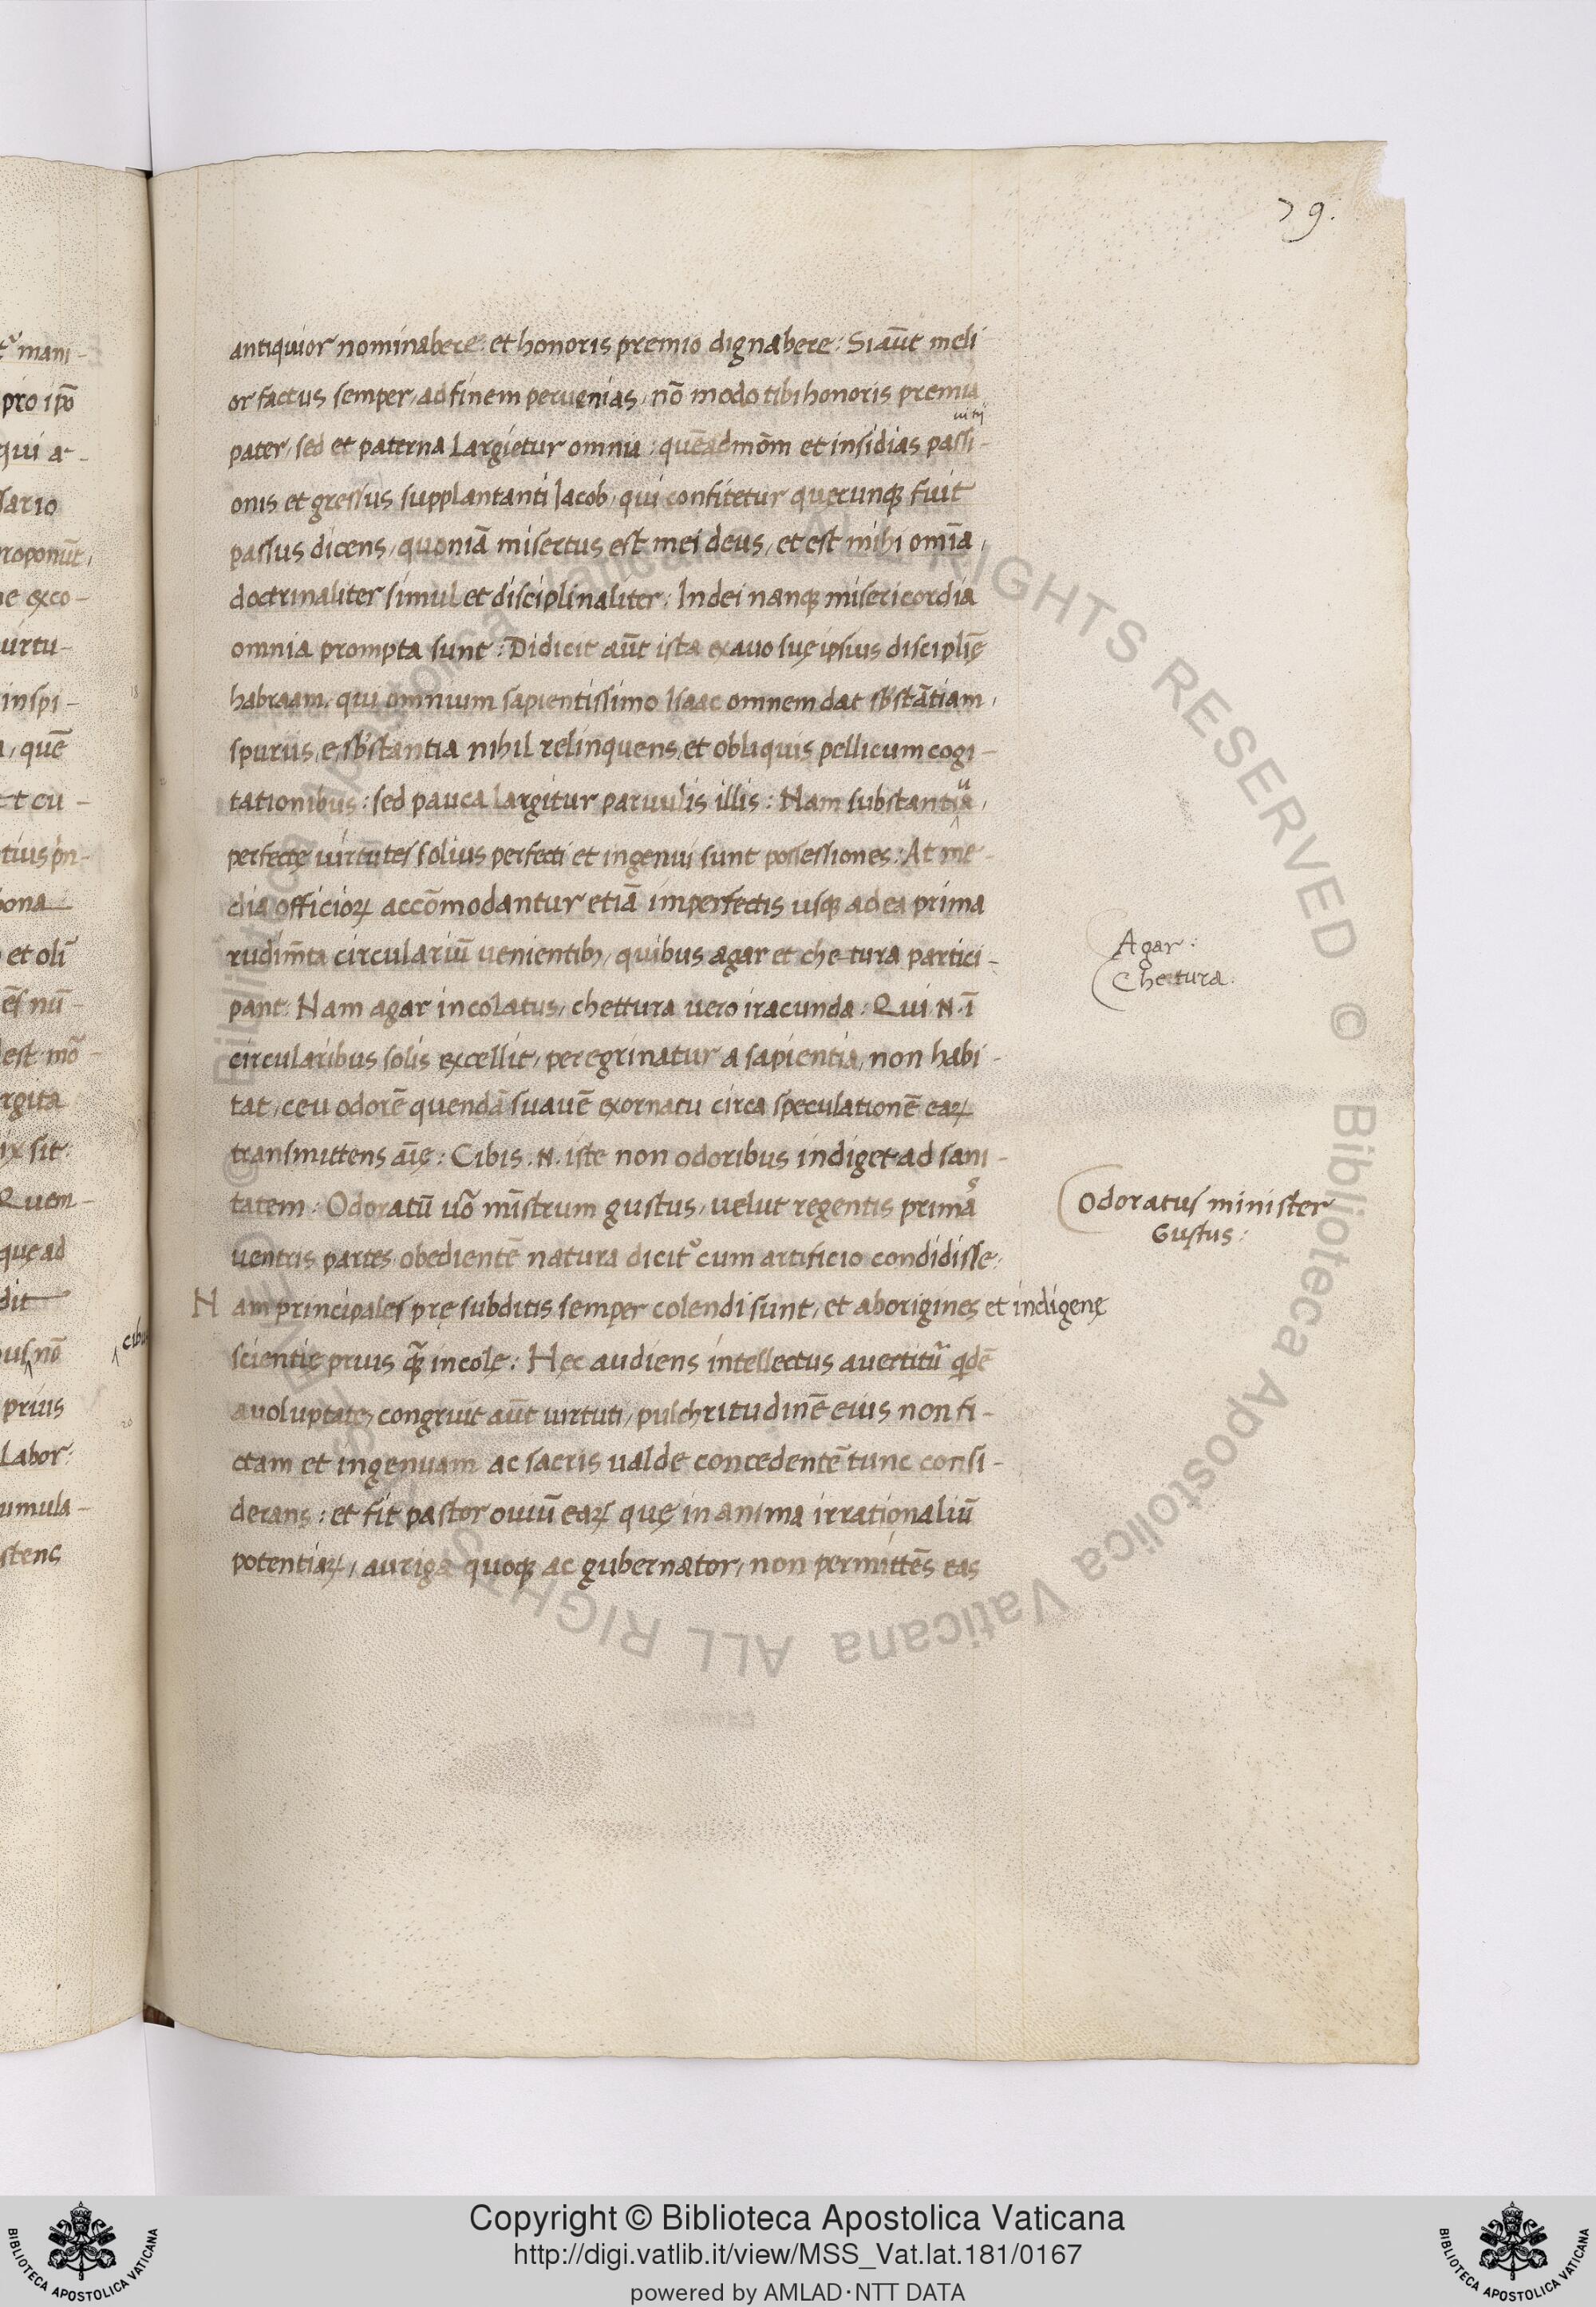 79.
antiquior nominabere: et honoris premio dignabere: Si aūt meli
or factus semper, ad finem peruenias, nō modo tibi honoris premia
pater, sed et paterna largietur omnia: quēadmōm et insidias passi-
onis et gressus supplantanti Iacob, qui confitetur quęcunqꝫ fuit
passus dicens, quoniā misertus est mei deus, et est mihi omīa,
doctrinaliter simul et disciplinaliter: In dei nanqꝫ misericordia
omnia prompta sunt: Didicit aūt ista ex auo suę ipsius disciplīę
habraam, qui omnium sapientissimo Isaac omnem dat sb'stātiam,
spuriis, e, sb'stantia nihil relinquens, et obliquis pellicum cogi-
tationibus: sed pauca largitur paruulis illis: Nam substantia,
perfectę uirtutes solius perfecti et ingenui sunt possessiones: At me-
dia officioꝝ accōmodantur etiā imperfectis usqꝫ ad ea prima
rudim̄ta circulariū uenientibꝫ, quibus agar et che-tura partici-
pant: Nam agar incolatus, chettura uero iracunda: Qui .N. ī
circularibus solis excellit, peregrinatur a sapientia, non habi-
tat, ceu odorē quendā suauē exornatu circa speculationē eaꝝ
transmittens aīę: Cibis .N. iste non odoribus indiget ad sani-
tatem: Odoratū uō mīstrum gustus, uelut regentis prima
uentris partes obedientē natura dicit᷑ cum artificio condidisse:
Nam principales prę subditis semper colendi sunt, et aborigines et indigenę
scientię prius qꝫ̄ incolę: Hęc audiens intellectus auertitū qdē
a uoluptate, congruit aūt uirtuti, pulchritudinē eius non fi-
ctam et ingenuam ac sacris ualde concedentē tunc consi-
derans: et fit pastor ouiū eaꝝ quę in anima irrationaliū
potentiaꝝ, auriga quoqꝫ ac gubernator, non permittēs eas
Agar:
Chettura.
Odoratus minister
Gustus:
mani-
pro ipō
qui a-
sario
roponūt,
ne exco-
uirtu-
inspi-
, quē
cu-
bona
et oli
est mō-
rgita
ix sit:
Quem-
quę ad
dit
cibu
us nō
prius
Labor:
umula-
stens
Copyright © Biblioteca Apostolica Vaticana
http://digi.vatlib.it/view/MSS_Vat.lat.181/0167
powered by AMLAD·NTT DATA
BIBLIOTECA APOSTOLICA VATICANA
BIBLIOTECA APOSTOLICA VATICANA
© Biblioteca Apostolica Vaticana ALL RIGHTS RESERVED © Biblioteca Apostolica Vaticana ALL RIGHTS RESERVED